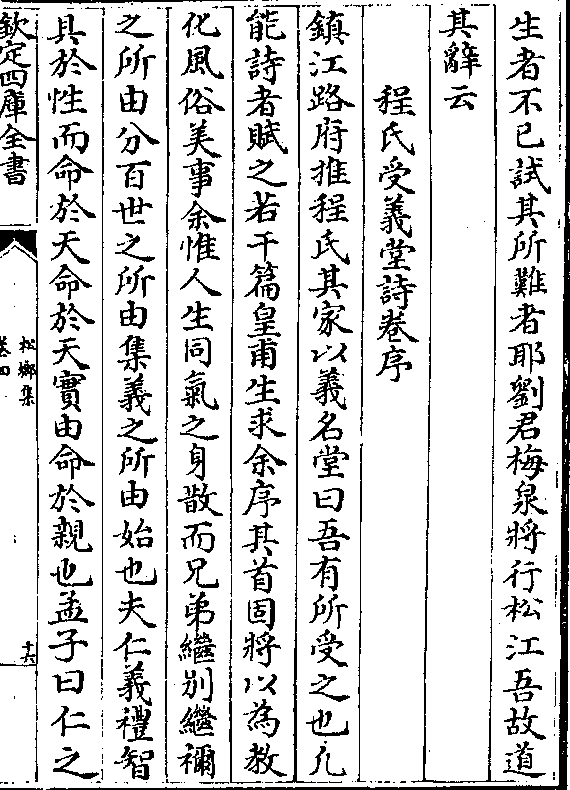 生者不已試其所難者耶劉君梅泉將行松江吾故道
其辭云
程氏受義堂詩卷序
鎮江路府推程氏其家以義名堂曰吾有所受之也凢
能詩者賦之若干篇皇甫生求余序其首固將以為教
化風俗美事余惟人生同氣之身散而兄弟繼别繼禰
之所由分百世之所由集義之所由始也夫仁義禮智
具於性而命於天命於天實由命於親也孟子曰仁之
欽定四庫全書
松鄉集
卷四
十六